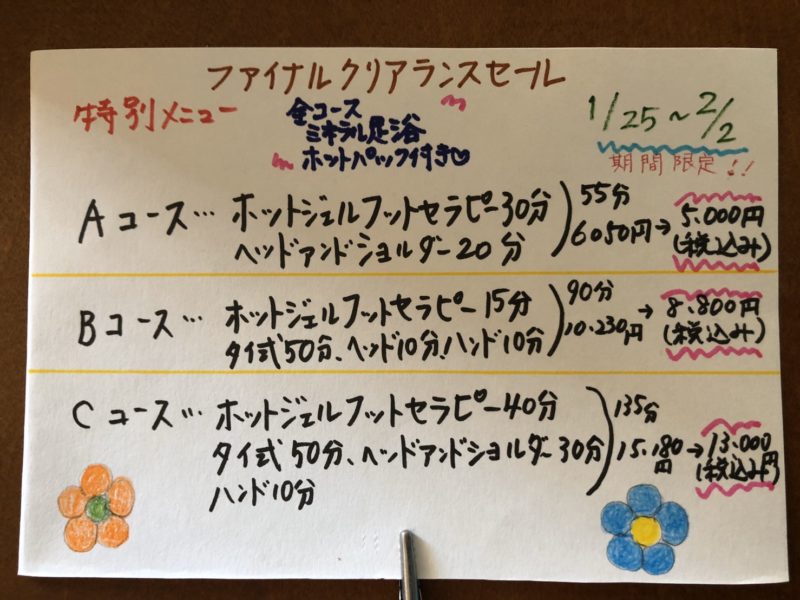 ファイナルクリアランスセール
特別メニュー
全コース
ミネラル足浴
ホットパック付き♡
1/25～2/2
期間限定!!
Aコース… ホットジェルフットセラピー30分
ヘッドアンドショルダー20分
55分
6050円→5.000円
(税込み)
Bコース… ホットジェルフットセラピー15分
タイ式50分、ヘッド10分、ハンド10分
90分
10.230円→8.800円
(税込み)
Cコース… ホットジェルフットセラピー40分
タイ式50分、ヘッドアンドショルダー30分
ハンド10分
135分
15.180円→13.000円
(税込み)